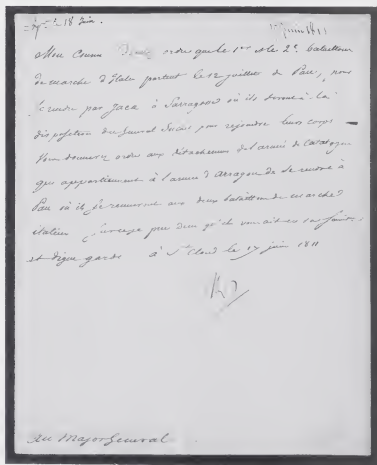 18 Juin.
juin 1811
Mon Cousin ordre que le 1er et le 2e bataillons
de marche d'Italie partent le 12 juillet de Pau, pour
se rendre par Jaca à Sarragosse où ils seront à la
disposition du Général Suchet pour rejoindre leurs corps
Vous donnerez ordre aux détachemens de l'armée de Catalogne
qui appartiennent à l'armée d'Arragon de se rendre à
Pau où ils se réuniront aux deux bataillons de marche
italiens Sur ce je prie Dieu qu'il vous ait en sa sainte
et digne garde à St Cloud le 17 juin 1811
Au Major Général